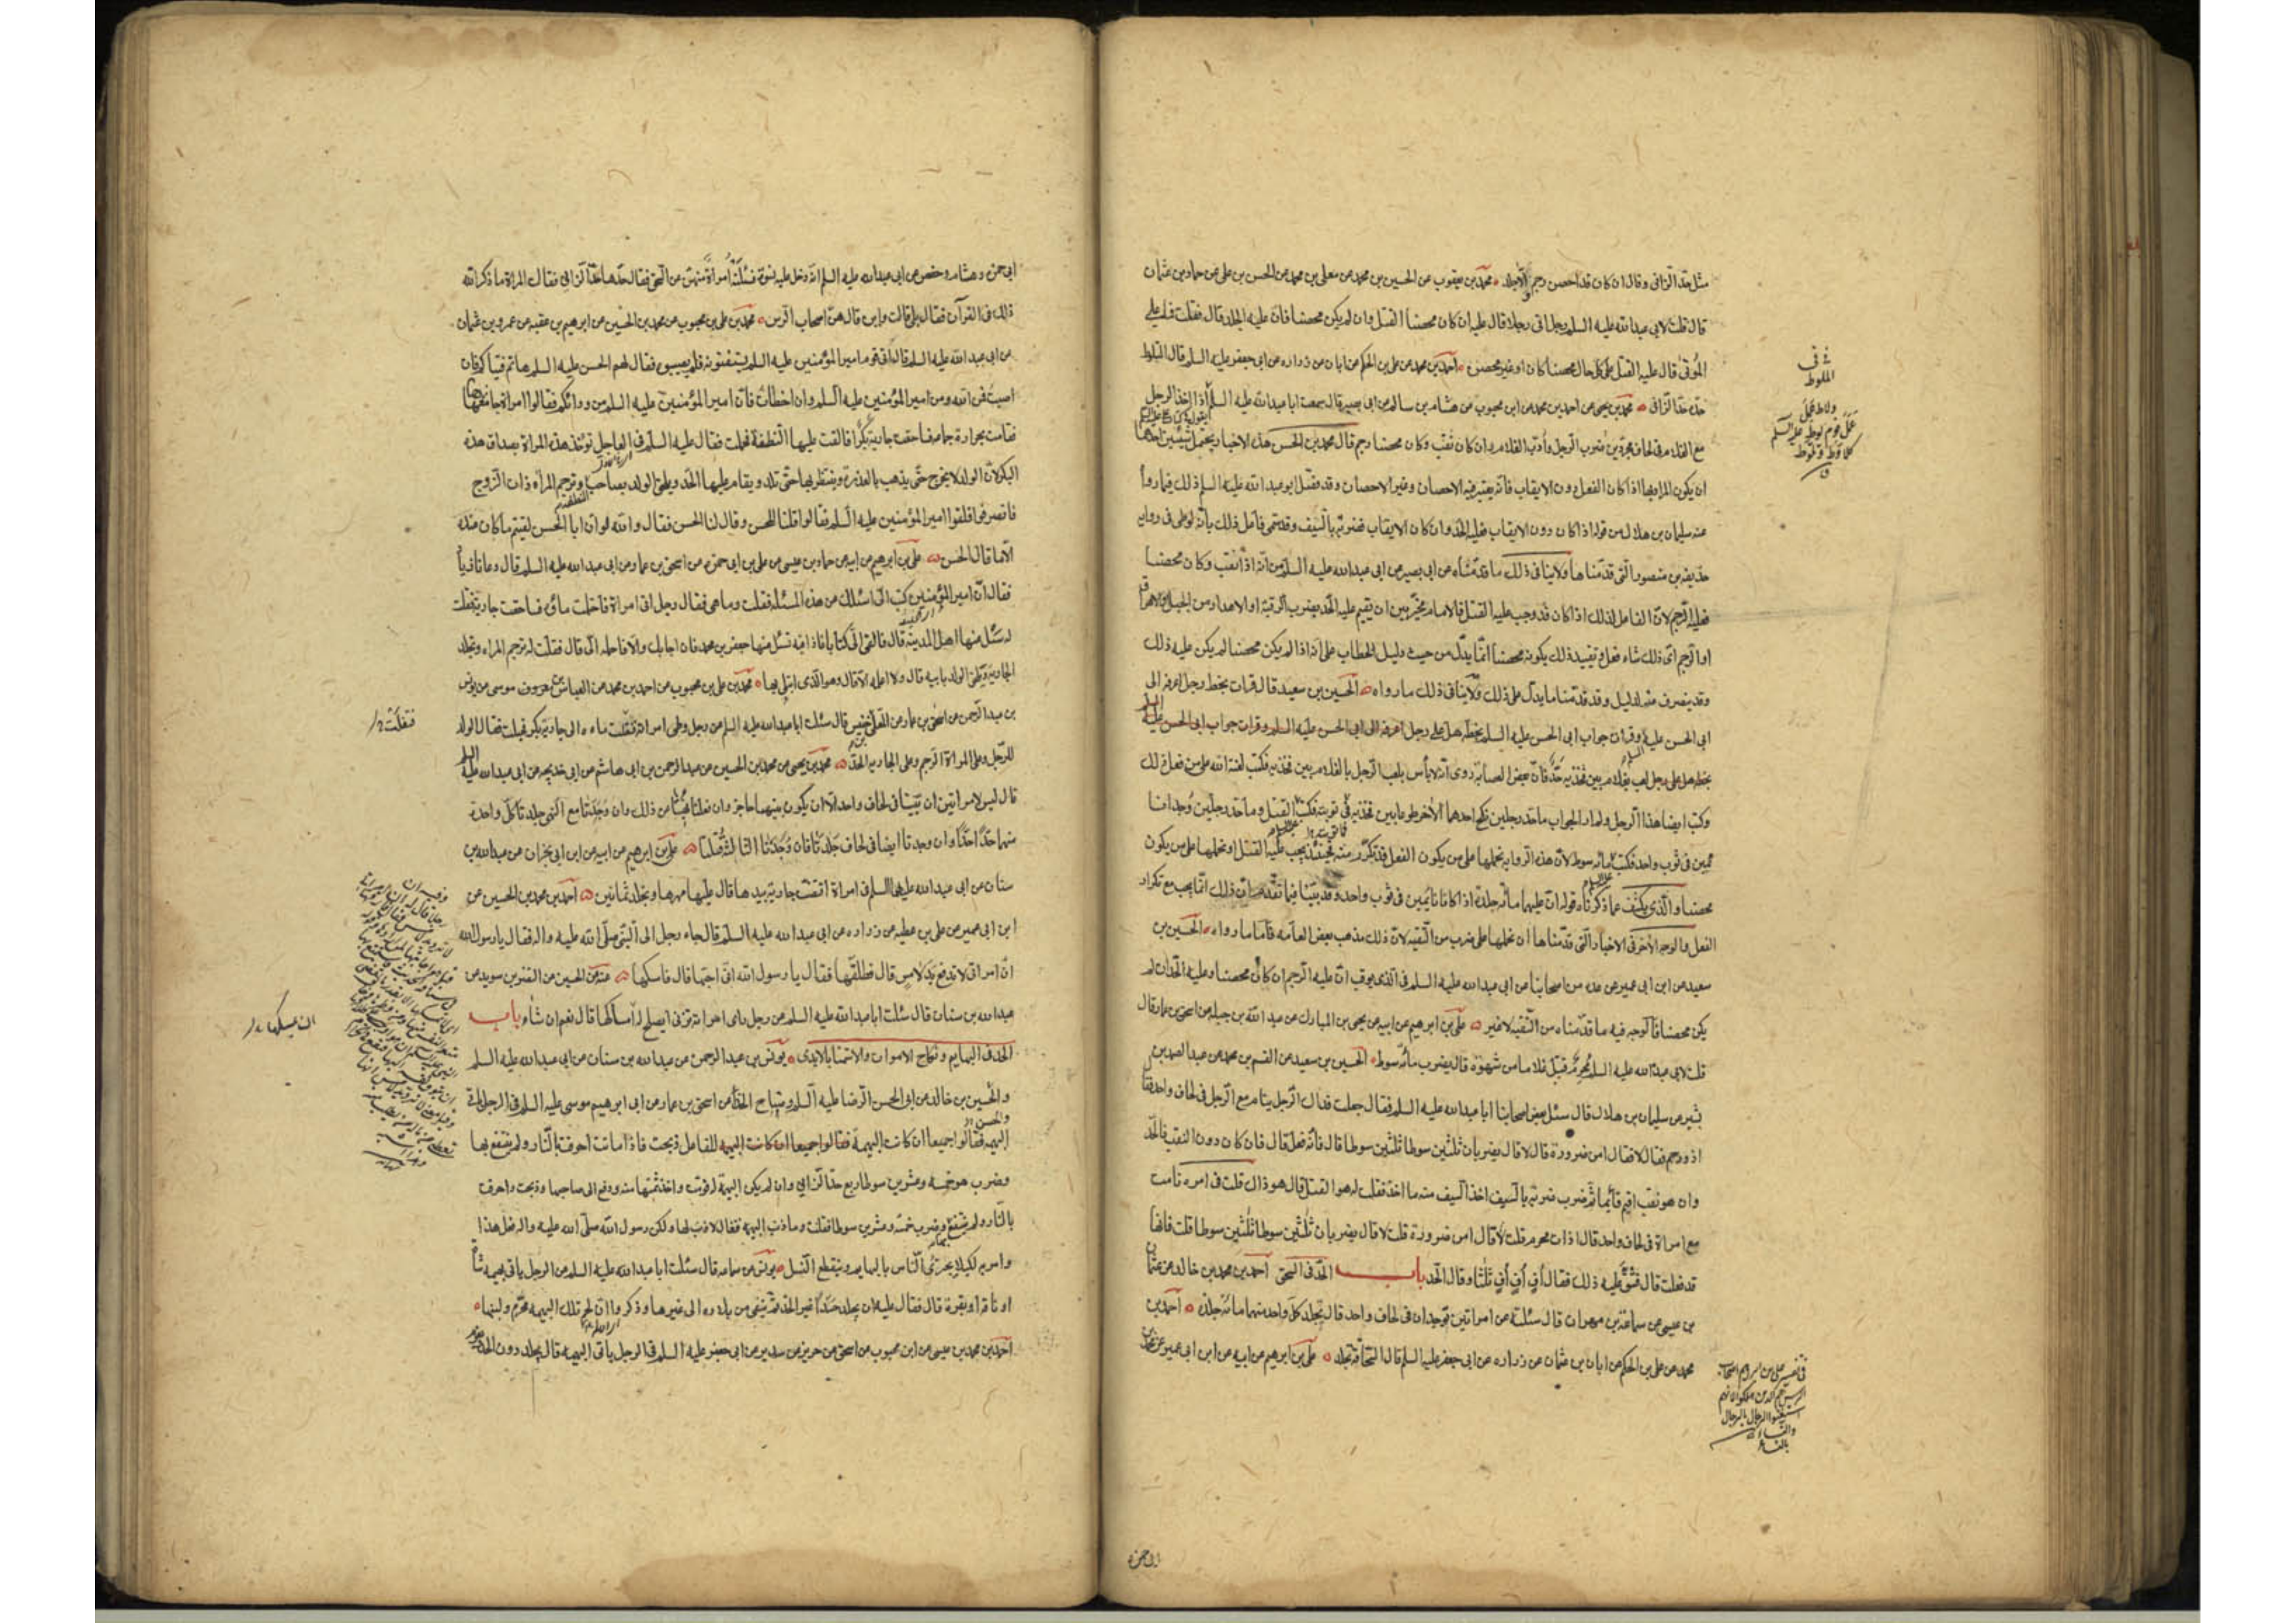 مثل حد الزانى وقال ان كان قد احصن رجم والا جلد محمد بن يعقوب عن الحسين بن محمد عن معلى بن محمد عن الحسن بن على عن حماد بن عثمان
قال قلت لابى عبد الله عليه السلم رجل اتى رجلا قال عليه ان كان محصنا القتل وان لم يكن محصنا فان عليه الجلد قال فقلت فما على
المؤتى قال عليه القتل على كل حال محصنا كان او غير محصن احمد بن محمد عن على بن الحكم عن ابان عن زراره عن ابى جعفر عليه السلم قال الملوط
حده حد الزانى محمد بن يحيى عن احمد بن محمد عن ابن محبوب عن هشام بن سالم عن ابى بصير قال سمعت ابا عبد الله عليه السلم اذا اخذ الرجل
مع الغلام فى لحاف مجردين ضرب الرجل وادب الغلام وان كان ثقب وكان محصنا رجم قال محمد بن الحسن هذه الاخبار يحتمل شيئين احدهما
ان يكون المراد بها اذا كان الفعل دون الايقاب فانه يعتبر فيه الاحصان وغير الاحصان وقد فصل ابو عبد الله عليه السلم ذلك فيما رواه
عنه سليمان بن هلال من قوله اذا كان دون الايقاب فعليه الحد وان كان الايقاب ضربة بالسيف وقد سمى فاعل ذلك بانه لوطى فى روايه
حذيفه بن منصور التى قدمناها ولا ينافى ذلك ما قدمناه عن ابى بصير عن ابى عبد الله عليه السلم من انه اذا ثقب وكان محصنا
فعليه الرجم لان الفاعل لذلك اذا كان قد وجب عليه القتل فالامام مخير بين ان يقيم عليه الحد بضرب الرقبة او الاهداء من الجبل او الاحراق
او الرجم اى ذلك شاء فعل وتقييد ذلك بكونه محصنا انما يدل من حيث دليل الخطاب على انه اذا لم يكن محصنا لم يكن عليه ذلك
وقد ينصرف عنه لدليل وقد قدمنا ما يدل على ذلك ولا ينافى ذلك ما رواه الحسين بن سعيد قال قرات بخط رجل اعرفه الى
ابى الحسن عليه السلم وقرات جواب ابى الحسن عليه السلم بخطه هل على رجل اعرفه الى ابى الحسن عليه السلم وقرات جواب ابى الحسن عليه السلم
بخطه هل على رجل لعب بغلام بين فخذيه حد فان بعض العصابة روى انه لا باس بلعب الرجل بالغلام بين فخذيه فكتب لعنة الله على من فعل ذلك
وكتب ايضا هذا الرجل ولم ار الجواب ما حد رجلين نكح احدهما الاخر طوعا بين فخذيه فى توبته فكتب القتل وما حد رجلين وجدا نا
ئمين فى ثوب واحد فكتب مائه سوط لان هذه الروايه نحملها على من يكون الفعل قد تكرر منه فحينئذ يجب عليه القتل او نحملها على من يكون
محصنا والذى يكشف عما ذكرناه قوله ان عليهما مائه جلدة اذا كانا نائمين فى ثوب واحد وقد بينا فيما تقدم ان ذلك انما يجب مع تكرار
الفعل والوجه الاخر فى الاخبار التى قدمناها ان نحملها على ضرب من التقيه لان ذلك مذهب بعض العامه فاما ما رواه الحسين بن
سعيد عن ابن ابى عمير عن عده من اصحابنا عن ابى عبد الله عليه السلم فى الذى يوقب ان عليه الرجم ان كان محصنا وعليه الحد ان لم
يكن محصنا فالوجه فيه ما قدمناه من التقيه لا غير على بن ابرهيم عن ابيه عن يحيى بن المبارك عن عبد الله بن جبله عن اسحق بن عمار قال
قلت لابى عبد الله عليه السلم محرم قبل غلاما من شهوة قال يضرب مائه سوط الحسين بن سعيد عن القسم بن محمد عن عبد الصمد بن
بشير عن سليمان بن هلال قال سئل بعض اصحابنا ابا عبد الله عليه السلم فقال جعلت فداك الرجل ينام مع الرجل فى لحاف واحد فقال
اذو رحم فقال لا فقال امن ضرورة قال لا قال يضربان ثلثين سوطا ثلثين سوطا قال فانه فعل قال فان كان دون الثقب فالحد
وان هو ثقب اقيم قائما ثم ضرب ضربة بالسيف اخذ السيف منه ما اخذ فقلت له هو القتل قال هو ذاك قلت فى امره نامت
مع امراة فى لحاف واحد قال اذات محرم قلت لا قال امن ضرورة قلت لا قال يضربان ثلثين سوطا ثلثين سوطا قلت فانها
قد فعلت قال فشق عليه ذلك فقال اف اف اف ثلثا وقال الحد باب الحد فى السحق احمد بن محمد بن خالد عن عثمان
بن عيسى عن سماعة بن مهران قال سئلته عن امراتين توجدان فى لحاف واحد قال تجلد كل واحدة منهما مائة جلدة احمد بن
محمد عن على بن الحكم عن ابان بن عثمان عن زراره عن ابى جعفر عليه السلم قال السحاقة تجلد على بن ابرهيم عن ابيه عن ابن ابى عمير عن محمد بن
ابى حمزه
ابى حمزه وهشام وحفص عن ابى عبد الله عليه السلم انه دخل عليه نسوة فسئلته امراة منهن عن السحق فقال حدها حد الزانى فقالت المراة ما ذكر الله
ذلك فى القرآن فقال بلى قالت واين قال هن اصحاب الرس محمد بن على بن محبوب عن محمد بن الحسين عن ابرهيم بن عقبه عن عمرو بن عثمان
عن ابى عبد الله عليه السلم قال اتى قوم امير المؤمنين عليه السلم يستفتونه فلم يصيبوه فقال لهم الحسن عليه السلم هاتم فتياكم فان
اصبت فمن الله ومن امير المؤمنين عليه السلم وان اخطات فان امير المؤمنين عليه السلم من ورائكم فقالوا امراة جامعها زوجها
فقامت بحرارة جماعه فساحقت جارية بكرا فالقت عليها النطفة فحملت فقال عليه السلم فى العاجل تؤخذ هذه المراة بصداق هذه
البكر لان الولد لا يخرج حتى يذهب بالعذرة وينتظر بها حتى تلد ويقام عليها الحد ويلحق الولد بصاحب النطفة وترجم المراه ذات الزوج
فانصرفوا فلقوا امير المؤمنين عليه السلم فقالوا قلنا للحسن وقال لنا الحسن فقال والله لو ان ابا الحسن لقيتم ما كان عنده
الا ما قال الحسن على بن ابرهيم عن ابيه عن حماد بن عيسى عن على بن ابى حمزه عن اسحق بن عمار عن ابى عبد الله عليه السلم قال دعانا زياد
فقال ان امير المؤمنين كتب الى اسئلك عن هذه المسئله فقلت وما هى فقال رجل اتى امراة فاحتملت ماءه فساحقت جارية فحملت
له سئل عنها اهل المدينه قال فالقى الى كتابا فاذا فيه تسئل عنها جعفر بن محمد فان اجابك والا فاحمله الى قال فقلت له ترجم المراه وتجلد
الجارية ويلحق الولد بابيه قال ولا اعلمه الا قال وهو الذى ابتلى بها محمد بن على بن محبوب عن احمد بن محمد عن العباس بن موسى عن يونس
بن عبد الرحمن عن اسحق بن عمار عن المعلى بن خنيس قال سئلت ابا عبد الله عليه السلم عن رجل وطى امراته فنقلت ماءه الى جاريه بكر فحبلت فقال الولد
للرجل وعلى المراة الرجم وعلى الجاريه الحد محمد بن يحيى عن محمد بن الحسين عن عبد الرحمن بن ابى هاشم عن ابى خديجه عن ابى عبد الله عليه السلم
قال ليس لامراتين ان تبيتا فى لحاف واحد الا ان يكون بينهما حاجز وان فعلتا نهيتا عن ذلك وان وجدتا مع النهى جلدتا كل واحدة
منهما حدا حدا وان وجدتا ايضا فى لحاف جلدتا فان وجدتا الثالثة قتلتا على بن ابرهيم عن ابيه عن ابن ابى نجران عن عبد الله بن
سنان عن ابى عبد الله عليه السلم فى امراة افتضت جارية بيدها قال عليها مهرها وتجلد ثمانين احمد بن محمد بن الحسين عن
ابن ابى عمير عن على بن عطيه عن زراره عن ابى عبد الله عليه السلم قال جاء رجل الى النبى صلى الله عليه واله فقال يا رسول الله
ان امراتى لا تدفع يد لامس قال فطلقها فقال يا رسول الله انى احبها قال فامسكها عنه عن الحسين عن النضر بن سويد عن
عبد الله بن سنان قال سئلت ابا عبد الله عليه السلم عن رجل راى امراته تزنى ايصلح له امساكها قال نعم ان شاء باب
الحد فى البهايم ونكاح الاموات والاستمناء بالايدى يونس بن عبد الرحمن عن عبد الله بن سنان عن ابى عبد الله عليه السلم
والحسين بن خالد عن ابى الحسن الرضا عليه السلم وصباح الحذاء عن اسحق بن عمار عن ابى ابرهيم موسى عليه السلم فى الرجل ياتى
البهيمه فقالوا جميعا ان كانت البهيمة للفاعل ذبحت فاذا ماتت احرقت بالنار ولم ينتفع بها
وضرب هو خمسه وعشرين سوطا ربع حد الزانى وان لم يكن البهيمة له قومت واخذ ثمنها منه ودفع الى صاحبها وذبحت واحرقت
بالنار ولم ينتفع بها وضرب خمسه وعشرين سوطا فقلت وما ذنب البهيمه فقال لا ذنب لها ولكن رسول الله صلى الله عليه واله فعل هذا
وامر به لكيلا يجترئ الناس بالبهايم وينقطع النسل يونس عن سماعه قال سئلت ابا عبد الله عليه السلم عن الرجل ياتى بهيمه شاة
او ناقة او بقرة قال فقال عليه ان يجلد حدا غير الحد ثم ينفى من بلاده الى غيرها وذكروا ان لحم تلك البهيمه محرم ولبنها
احمد بن محمد بن عيسى عن ابن محبوب عن اسحق عن حريز عن سدير عن ابى جعفر عليه السلم فى الرجل ياتى البهيمه قال يجلد دون الحد
فنقلت